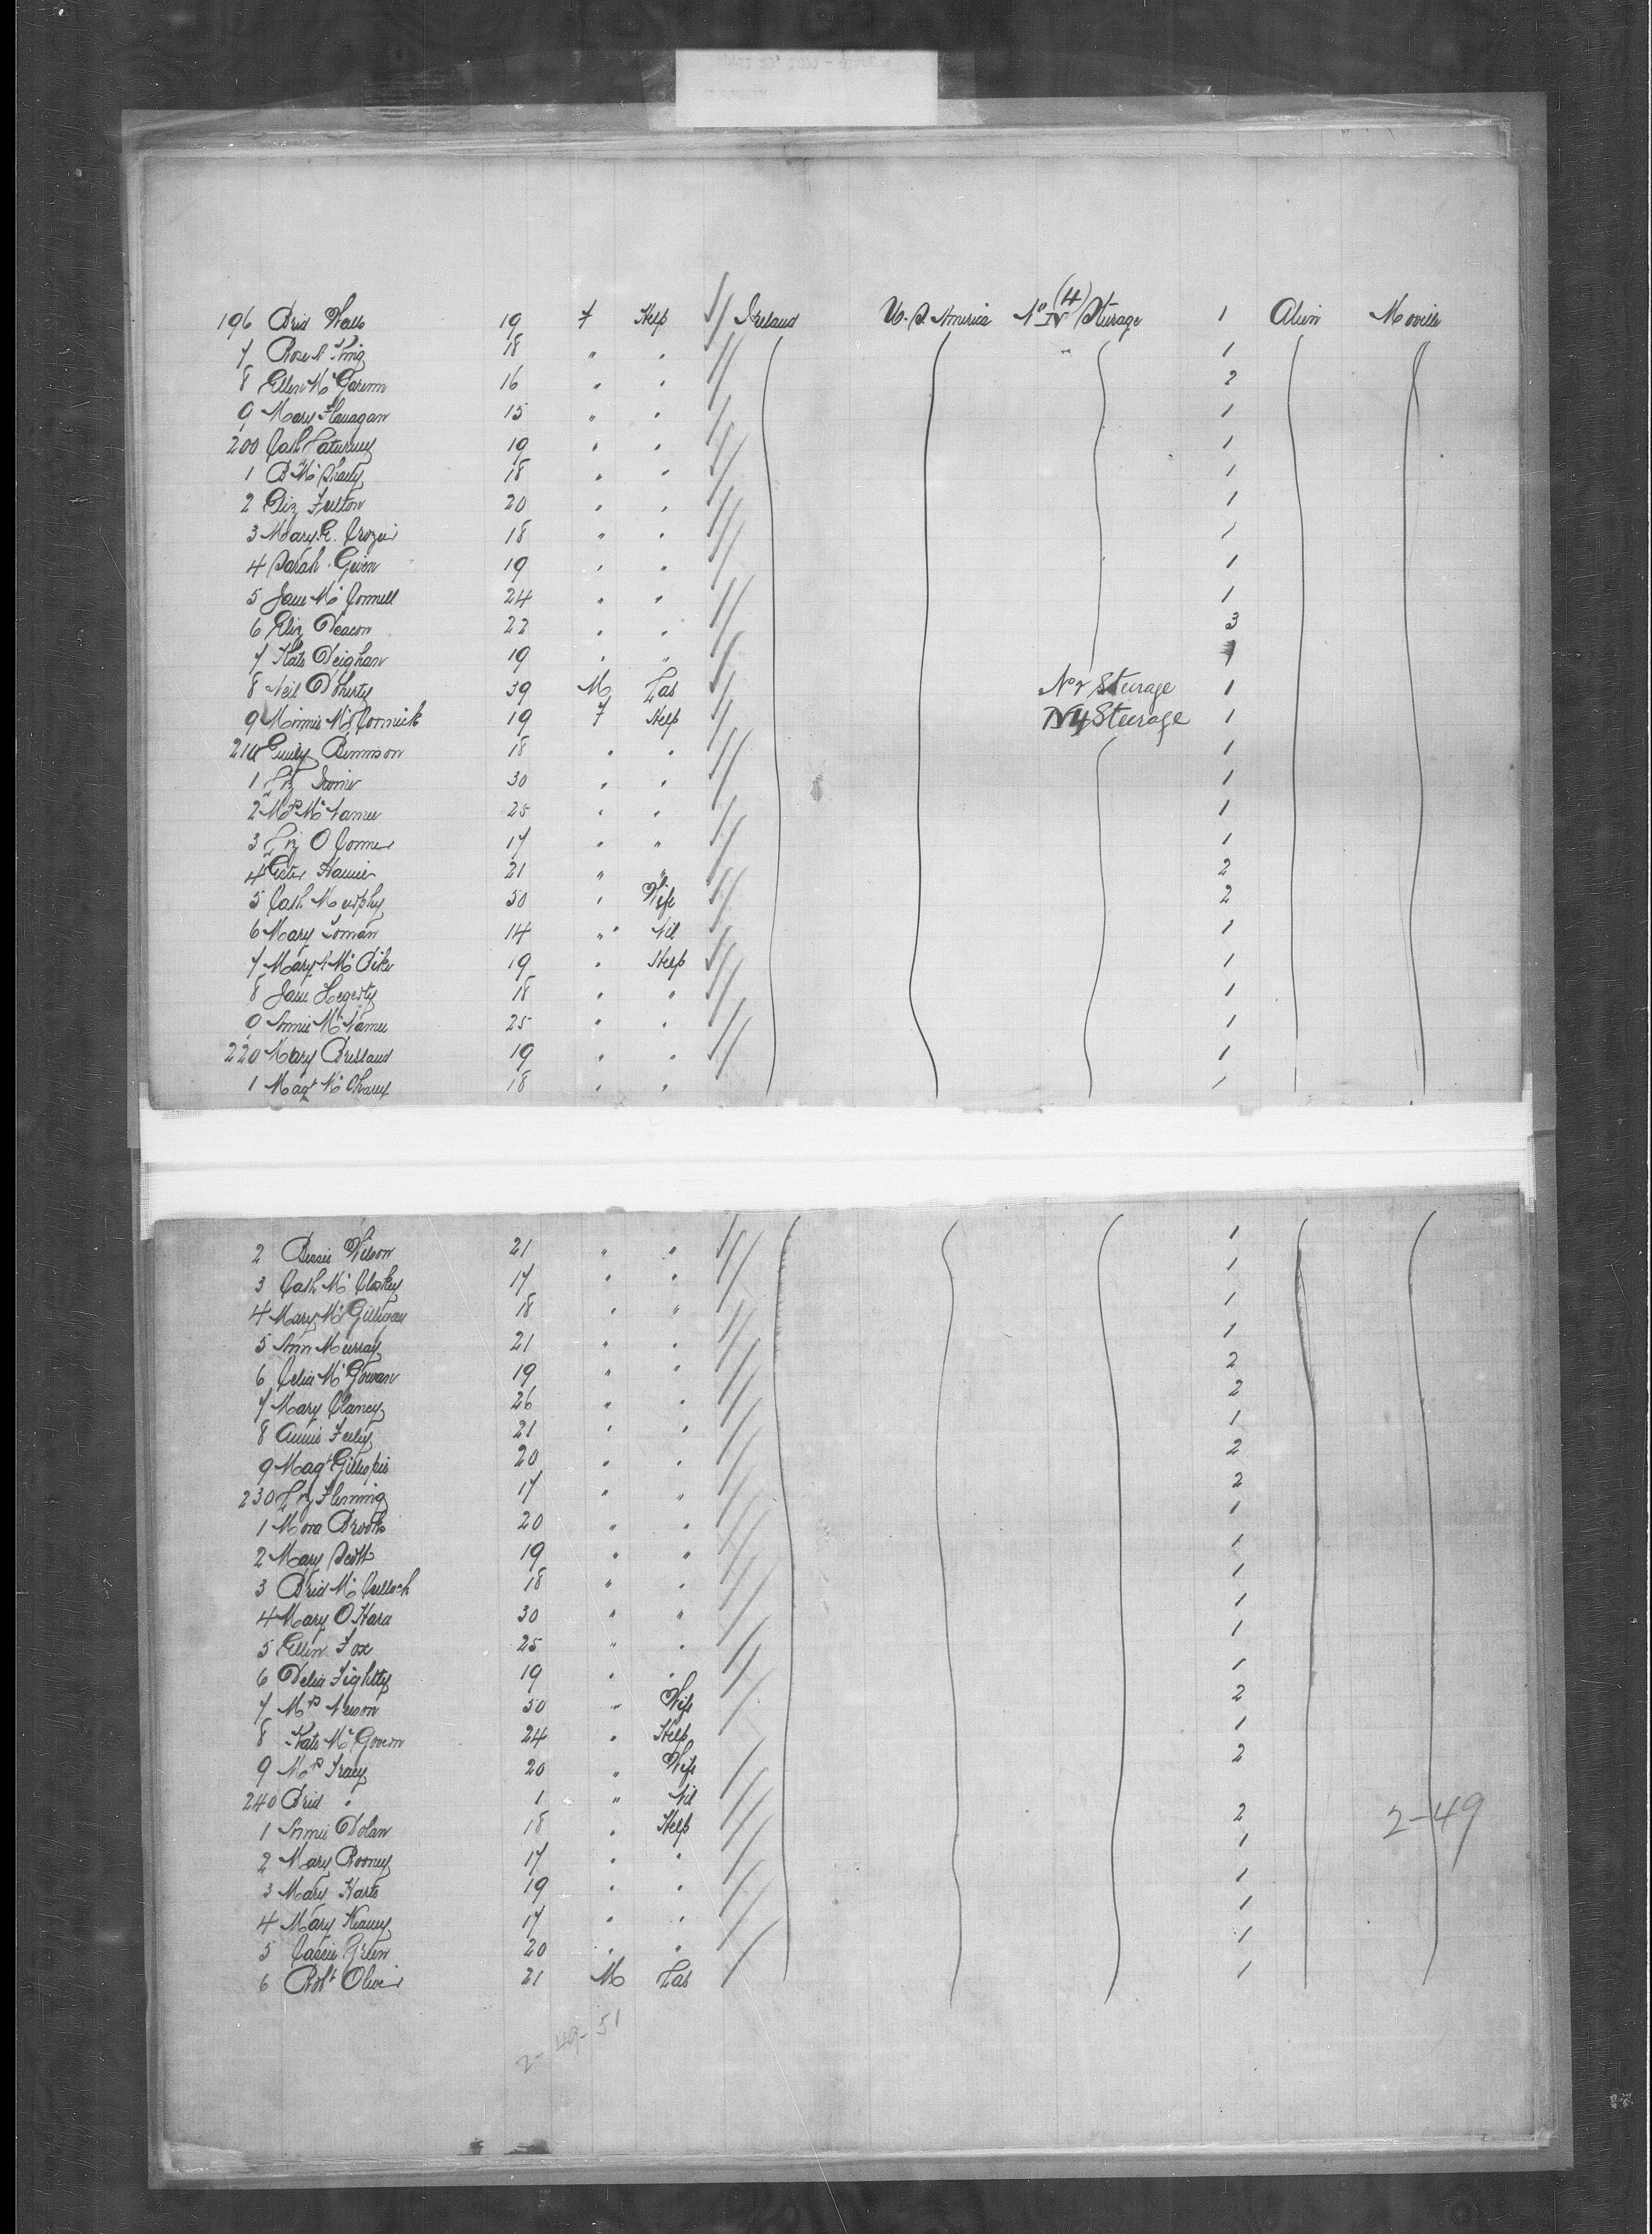 196 Brid Wells 19 F Help Ireland U. S. America No IV (4) Steurage 1 Alien Moville
7 Rose A King 18 " " 1
8 Ellen Mc Garenn 16 " " 2
9 Mary Flanagan 15 " " 1
200 Cath 19 " " 1
1 B Mc 18 " " 1
2 Eliz Fulton 20 " " 1
3 Mary E. Crozier 18 " " 1
4 Sarah Given 19 " " 1
5 Jane Mc Connell 24 " " 1
6 Eliz Deacon 22 " " 3
7 Kate Deighan 19 " " 1
8 Neil Doherty 39 M Lab No 2 Steerage 1
9 Minnie Mc Cormick 19 F Help N 4 Steerage 1
210 Emily Bennison 18 " " 1
1 Liz 30 " " 1
2 Mrs Mc Namee 25 " " 1
3 Liz O Conner 17 " " 1
4 Ester 21 " " 2
5 Cath Murphy 50 " Wife 2
6 Mary Loman 14 " Nil 1
7 Mary A Mc Bike 19 " Help 1
8 Jane Hegerty 18 " " 1
9 Annie Mc Namee 25 " " 1
220 Mary Bresland 19 " " 1
1 Magt Mc 18 " " 1
2 Bessie Wilson 21 " " 1
3 Cath Mc Closkey 17 " " 1
4 Mary Mc Gilligan 18 " " 1
5 Ann Murray 21 " " 1
6 Celia Mc Gowan 19 " " 2
7 Mary Clancy 26 " " 2
8 Annie Feely 21 " " 1
9 Magt Gillispie 20 " " 2
230 Liz Fleming 17 " " 2
1 Mora Brooks 20 " " 1
2 Mary Scott 19 " " 1
3 Brid Mc Culloch 18 " " 1
4 Mary O Hara 30 " " 1
5 Ellen Fox 25 " " 1
6 Delia Fightty 19 " " 1
7 Mrs Neeson 50 " Wife 2
8 Kate Mc Govern 24 " Help 1
9 Mrs Tracy 20 " Wife 2
240 Brid " 1 " Nil
1 Annie Dolan 18 " Help 2 2-49
2 Mary Rooney 17 " " 1
3 Mary Harte 19 " " 1
4 Mary Keaney 17 " " 1
5 Cassie Green 20 " " 1
6 Robt Oliver 21 M Lab 1
2-49-51